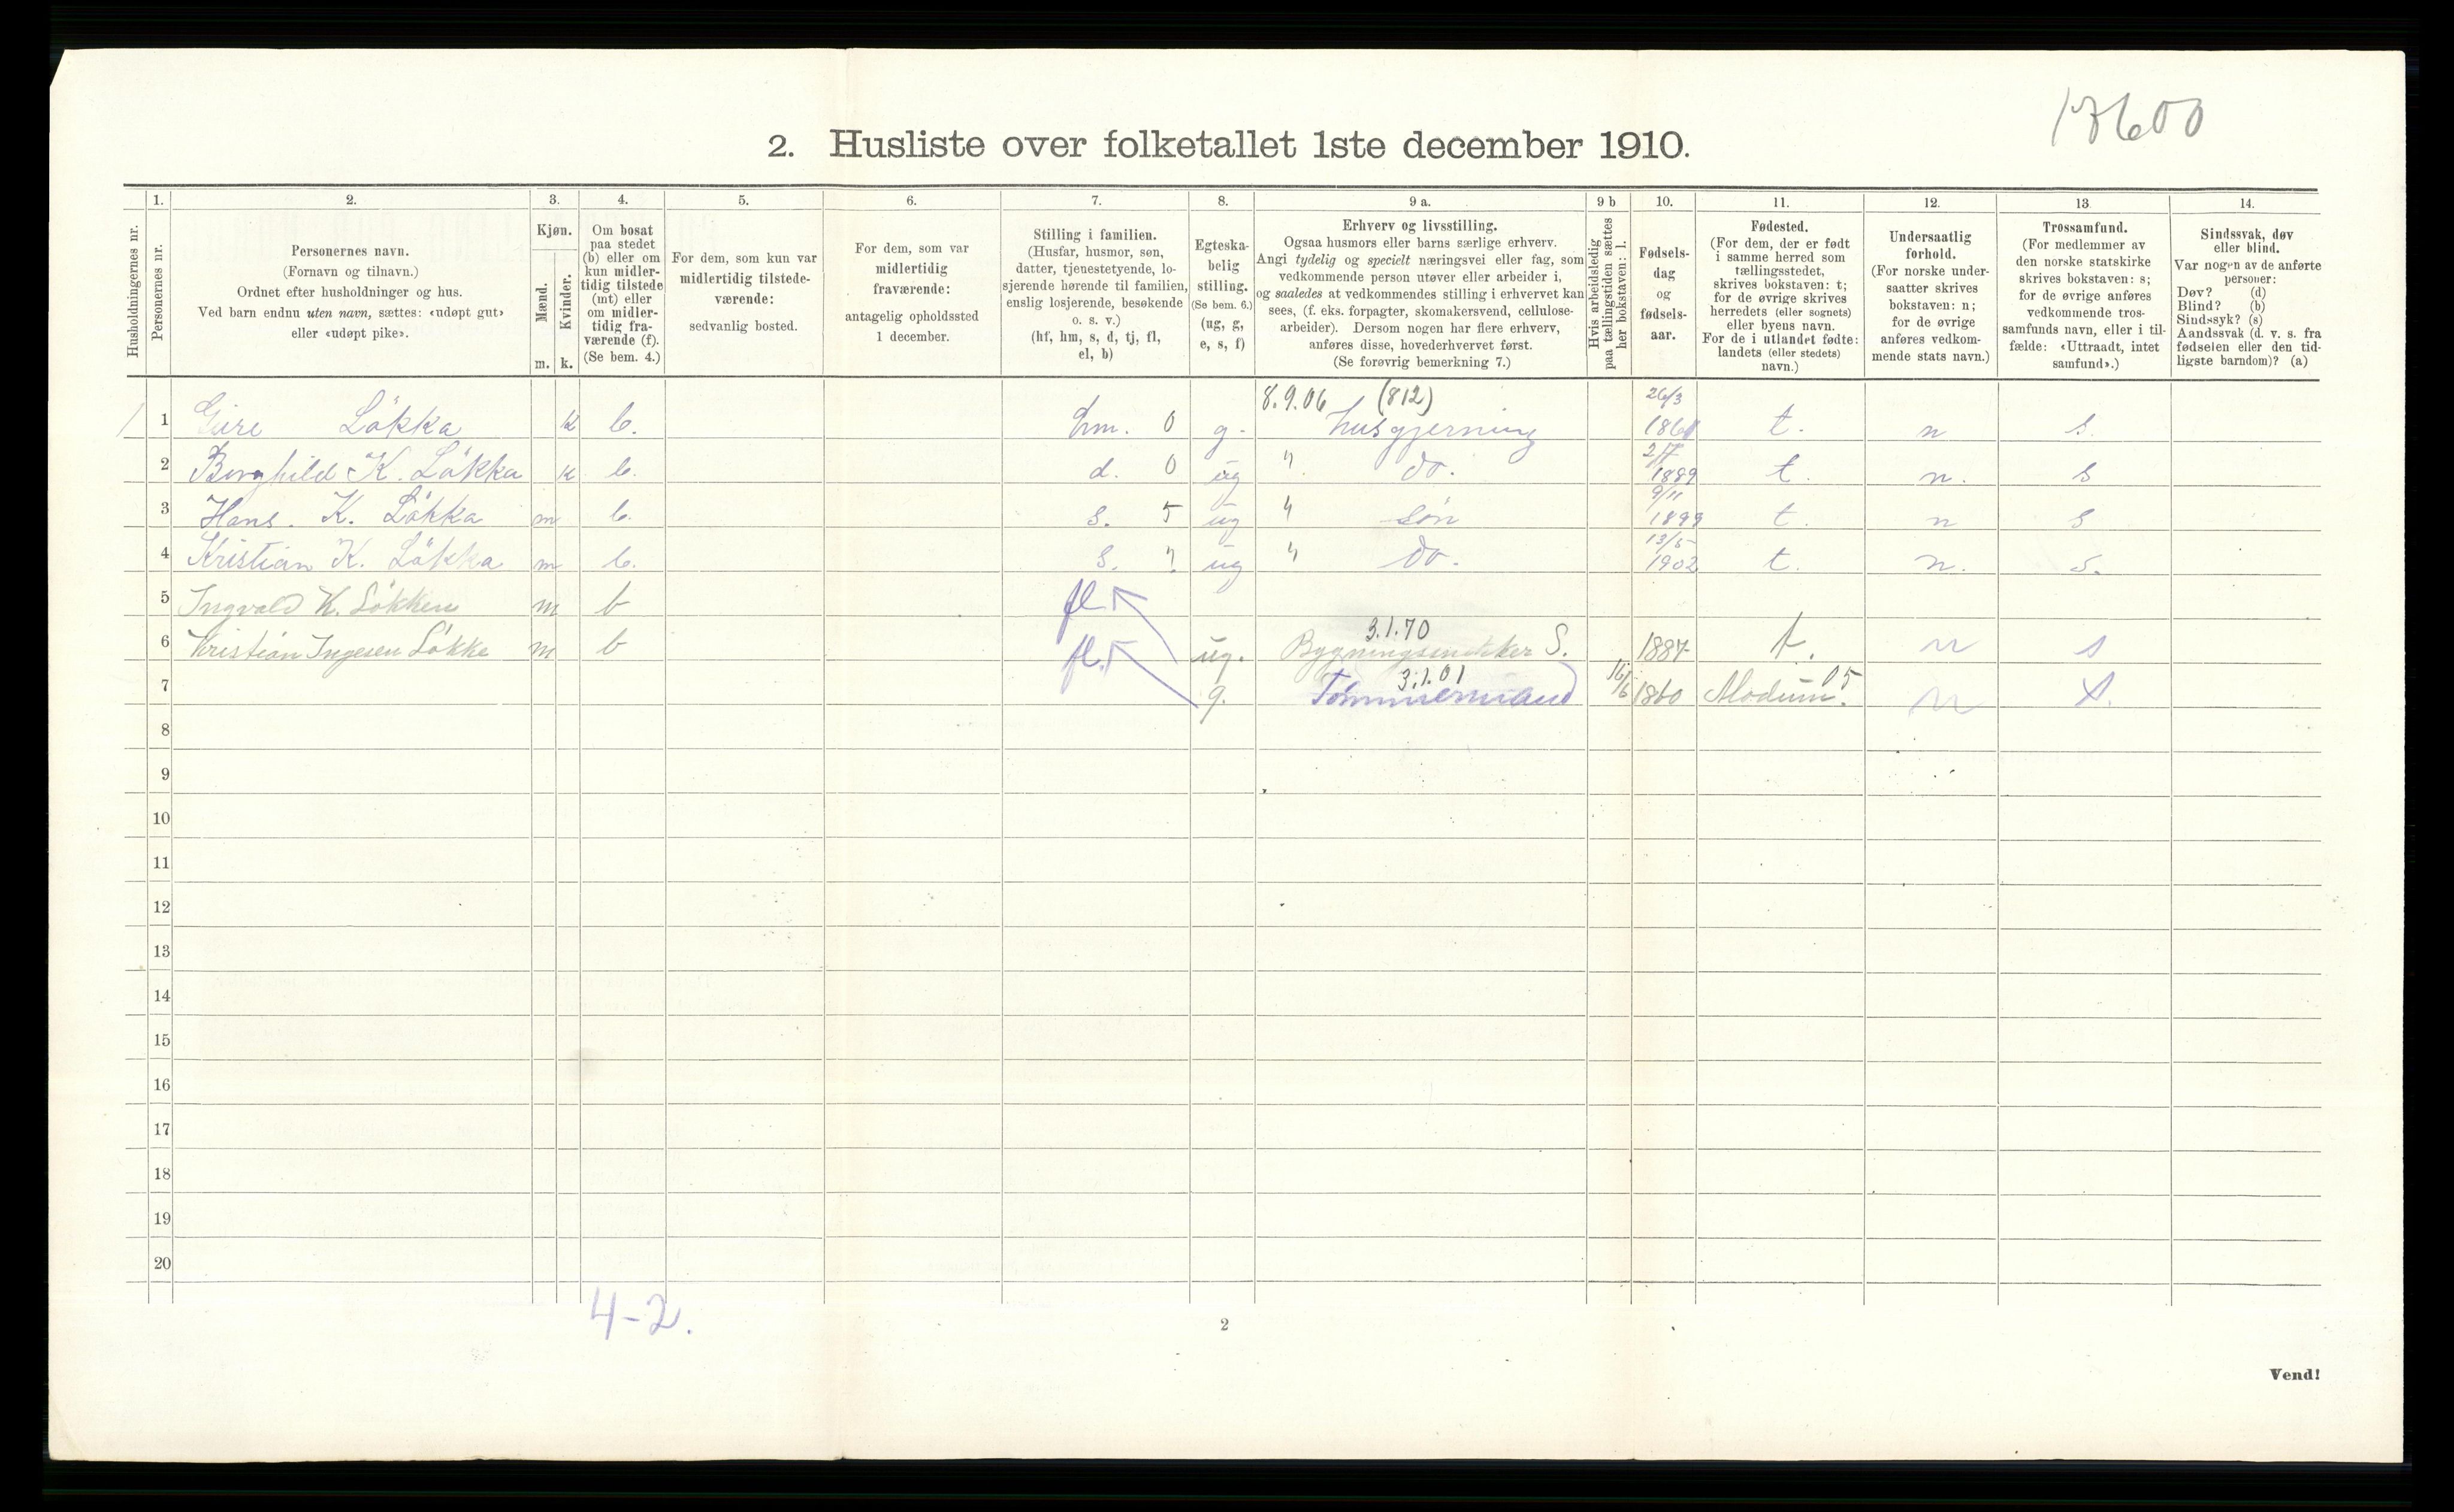 17600
2. Husliste over folketallet 1ste december 1910.
Husholdningernes nr.
1. Personernes nr.
2. Personernes navn.
(Fornavn og tilnavn.)
Ordnet efter husholdninger og hus.
Ved barn endnu uten navn, sættes: «udøpt gut»
eller «udøpt pike».
3. Kjøn.
Mænd. m.
Kvinder. k.
4. Om bosat
paa stedet
(b) eller om
kun midler-
tidig tilstede
(mt) eller
om midler-
tidig fra-
værende (f).
(Se bem. 4.)
5. For dem, som kun var
midlertidig tilstede-
værende:
sedvanlig bosted.
6. For dem, som var
midlertidig
fraværende:
antagelig opholdssted
1 december.
7. Stilling i familien.
(Husfar, husmor, søn,
datter, tjenestetyende, lo-
sjerende hørende til familien,
enslig losjerende, besøkende
o. s. v.)
(hf, hm, s, d, tj, fl,
el, b)
8. Egteska-
belig
stilling.
(Se bem. 6.)
(ug, g,
e, s, f)
9 a. Erhverv og livsstilling.
Ogsaa husmors eller barns særlige erhverv.
Angi tydelig og specielt næringsvei eller fag, som
vedkommende person utøver eller arbeider i,
og saaledes at vedkommendes stilling i erhvervet kan
sees, (f. eks. forpagter, skomakersvend, cellulose-
arbeider). Dersom nogen har flere erhverv,
anføres disse, hovederhvervet først.
(Se forøvrig bemerkning 7.)
9 b Hvis arbeidsledig
paa tællingstiden sættes
her bokstaven: l.
10. Fødsels-
dag
og
fødsels-
aar.
11. Fødested.
(For dem, der er født
i samme herred som
tællingsstedet,
skrives bokstaven: t;
for de øvrige skrives
herredets (eller sognets)
eller byens navn.
For de i utlandet fødte:
landets (eller stedets)
navn.)
12. Undersaatlig
forhold.
(For norske under-
saatter skrives
bokstaven: n;
for de øvrige
anføres vedkom-
mende stats navn.)
13 Trossamfund.
(For medlemmer av
den norske statskirke
skrives bokstaven: s;
for de øvrige anføres
vedkommende tros-
samfunds navn, eller i til-
fælde: «Uttraadt, intet
samfund».)
14. Sindssvak, døv
eller blind.
Var nogen av de anførte
personer:
Døv? (d)
Blind? (b)
Sindssyk? (s)
Aandssvak (d. v. s. fra
fødselen eller den tid-
ligste barndom)? (a)
8.9.06 (812) 26/3
1 Løkka k b. hm. 0 g. husgjerning t. n s.
2 Borghild K. Løkka k b. d. 0 ug " do. 1889 t. n. s
9/11
3 Hans. K. Løkka m b. s. 5 ug " søn 1899 t. n s
13/5
4 Kristian K. Løkka m b. s. ug " do. 1902 t. n. s.
5 Ingvald K. Løkken m b fl
3.1.70
6 Kristian Ingesen Løkke m b fl. ug. Bygningssnekker S. 1887 t. n s
3.1.01 05
7 g. Tømmermand 16/6 1860 Modum. n s.
8
9
10
11
12
13
14
15
16
17
18
19
20
4-2.
2
Vend!